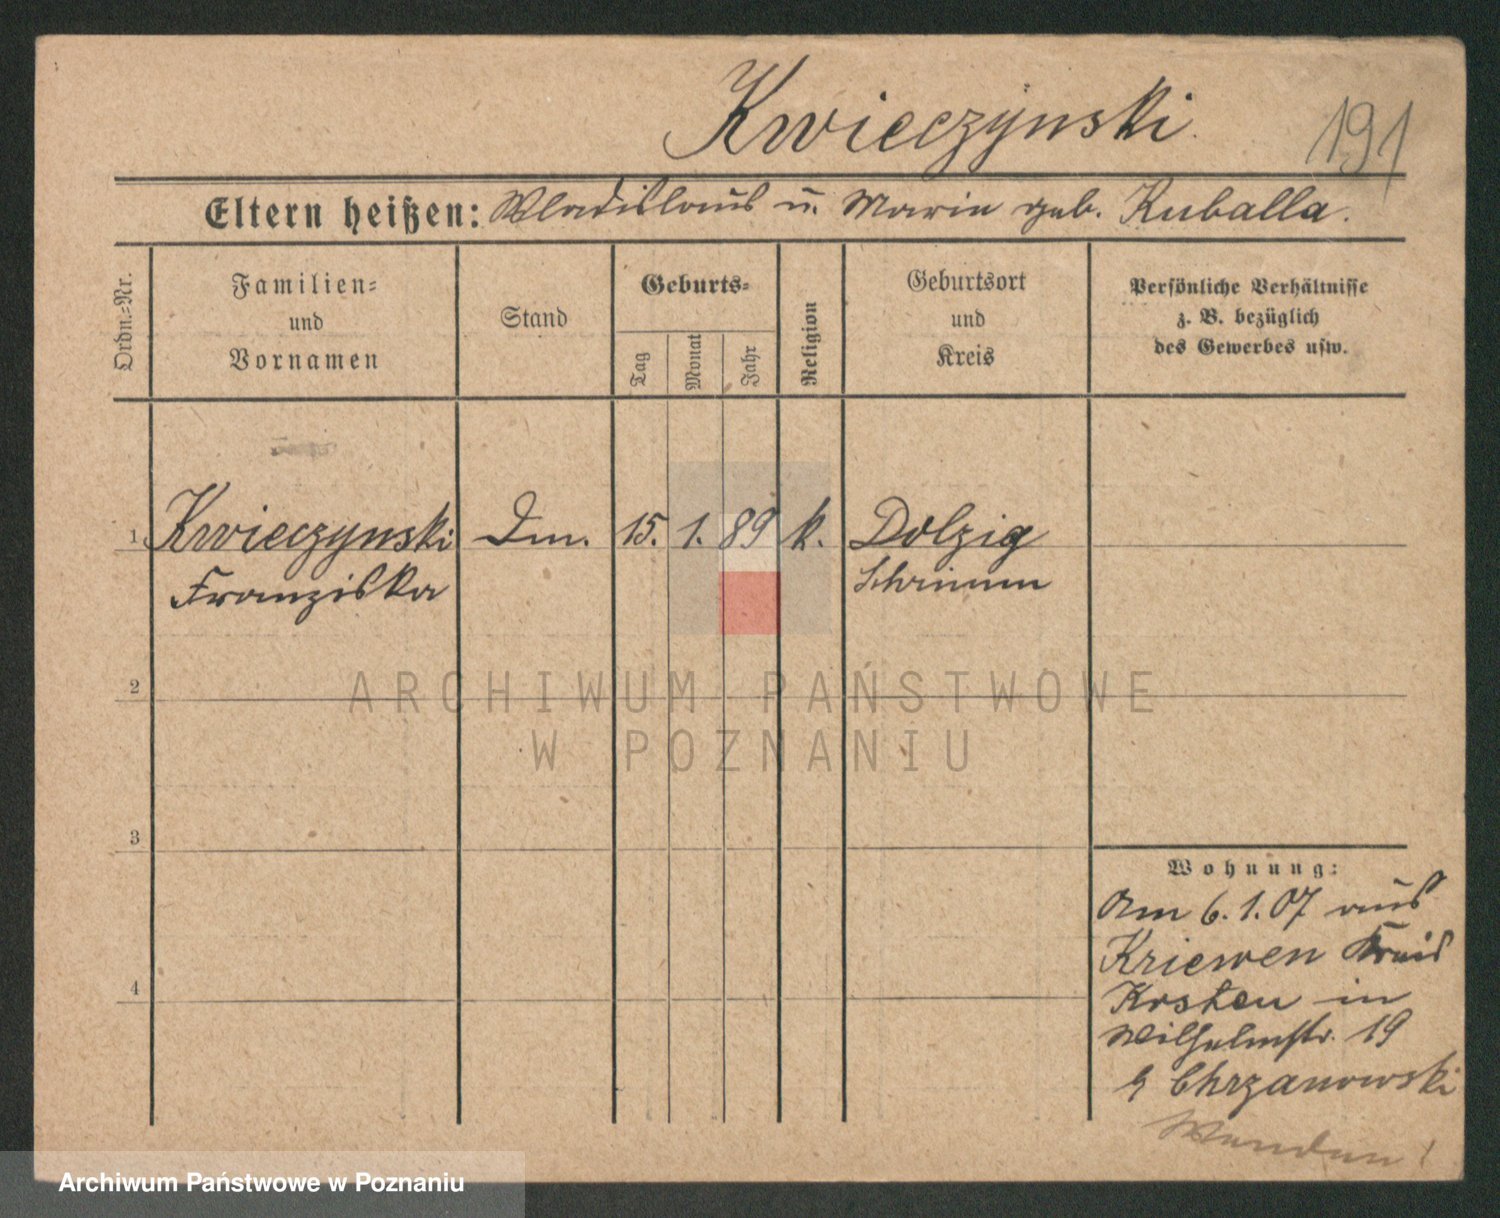 Kwieczynski
191
Eltern heißen: Wladislaus u. Marie geb. Kuballa.
Ordn.-Nr.
Familien-
und
Vornamen
Stand
Geburts-
Tag
Monat
Jahr
Religion
Geburtsort
und
Kreis
Persönliche Verhältnisse
z. B. bezüglich
des Gewerbes usw.
1 Kwieczynski 15. 1. 89 k. Dolzig
Franziska Schrimm
2
ARCHIWUM PAŃSTWOWE
W POZNANIU
3
Wohnung:
Am 6.1.07 aus
Kriewen Kreis
4
Kosten in
Wilhelmstr. 19
Chrzanowski
Wenden!
Archiwum Państwowe w Poznaniu